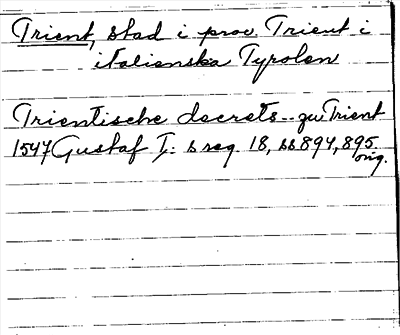 Trient, stad i prov. Trient i
italienska Tyrolen
Trientische decrets -- zu Trient
1547 Gustaf I: s reg 18, ss 894, 895
orig.